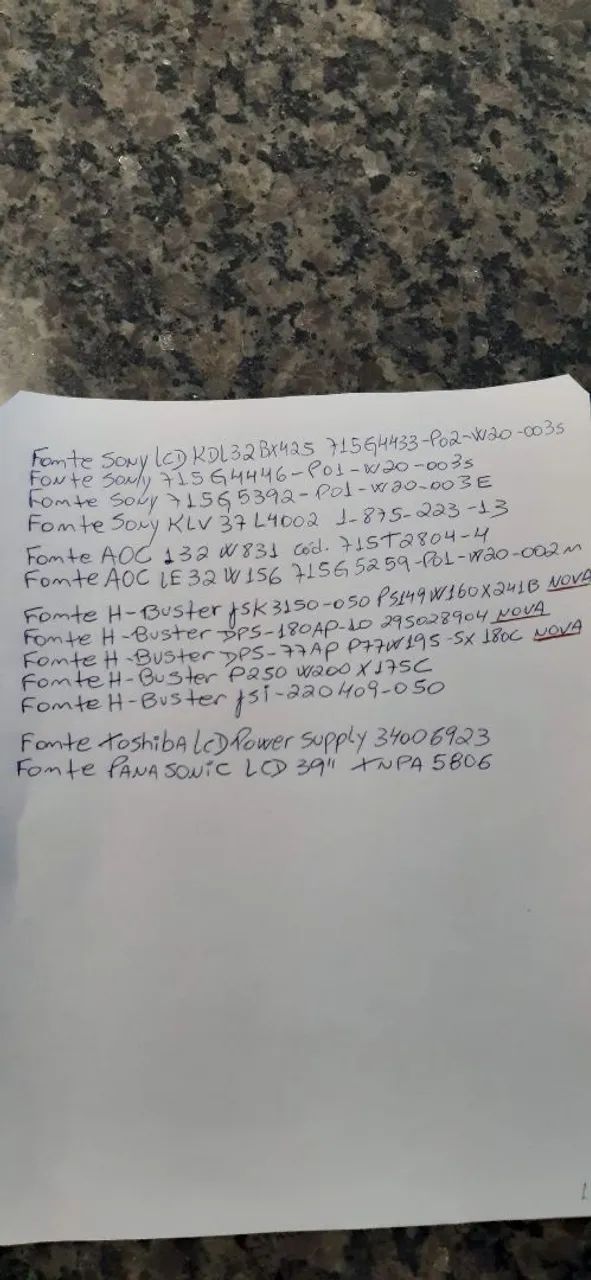 Fomte Sony LCD KDL32BX425 715G4433-P02-W20-003S
Fonte Sony 715G4446-P01-W20-003S
Fomte Sony 715G5392-P01-W20-003E
Fomte Sony KLV 37L4002 1-875-223-13
Fomte AOC 132 W831 Cod. 715T2804-4
Fomte AOC LE32W156 715G5259-P01-W20-002M
Fomte H-Buster JSK3150-050 PS149W160X241B NOVA
Fomte H-Buster DPS-180AP-10 295028904 NOVA
Fomte H-Buster DPS-77AP P77W195-5X180C NOVA
Fomte H-Buster P250 W200X175C
Fomte H-Buster JSI-220409-050
Fomte Toshiba LCD Power Supply 34006923
Fomte PANASONIC LCD 39" TNPA 5806
1